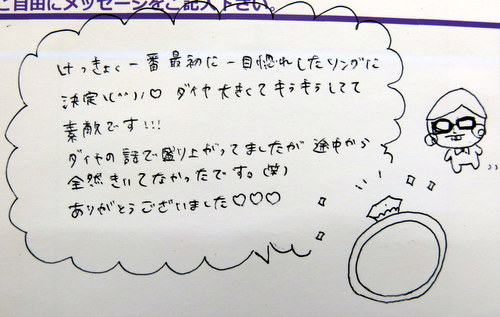 ご自由にメッセージをご記入下さい。
けっきょく一番最初に一目惚れしたリングに
決定\(^^)/♡ ダイヤ大きくてキラキラしてて
素敵です!!!
ダイヤの話で盛り上がってましたが途中から
全然きいてなかったです。(笑)
ありがとうございました♡♡♡